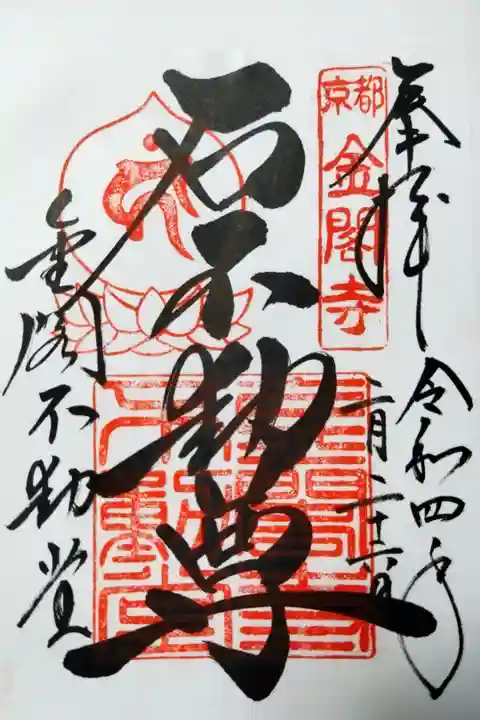 奉拝
令和四年
二月二十二日
京都
金閣寺
石不動尊
金閣不動堂